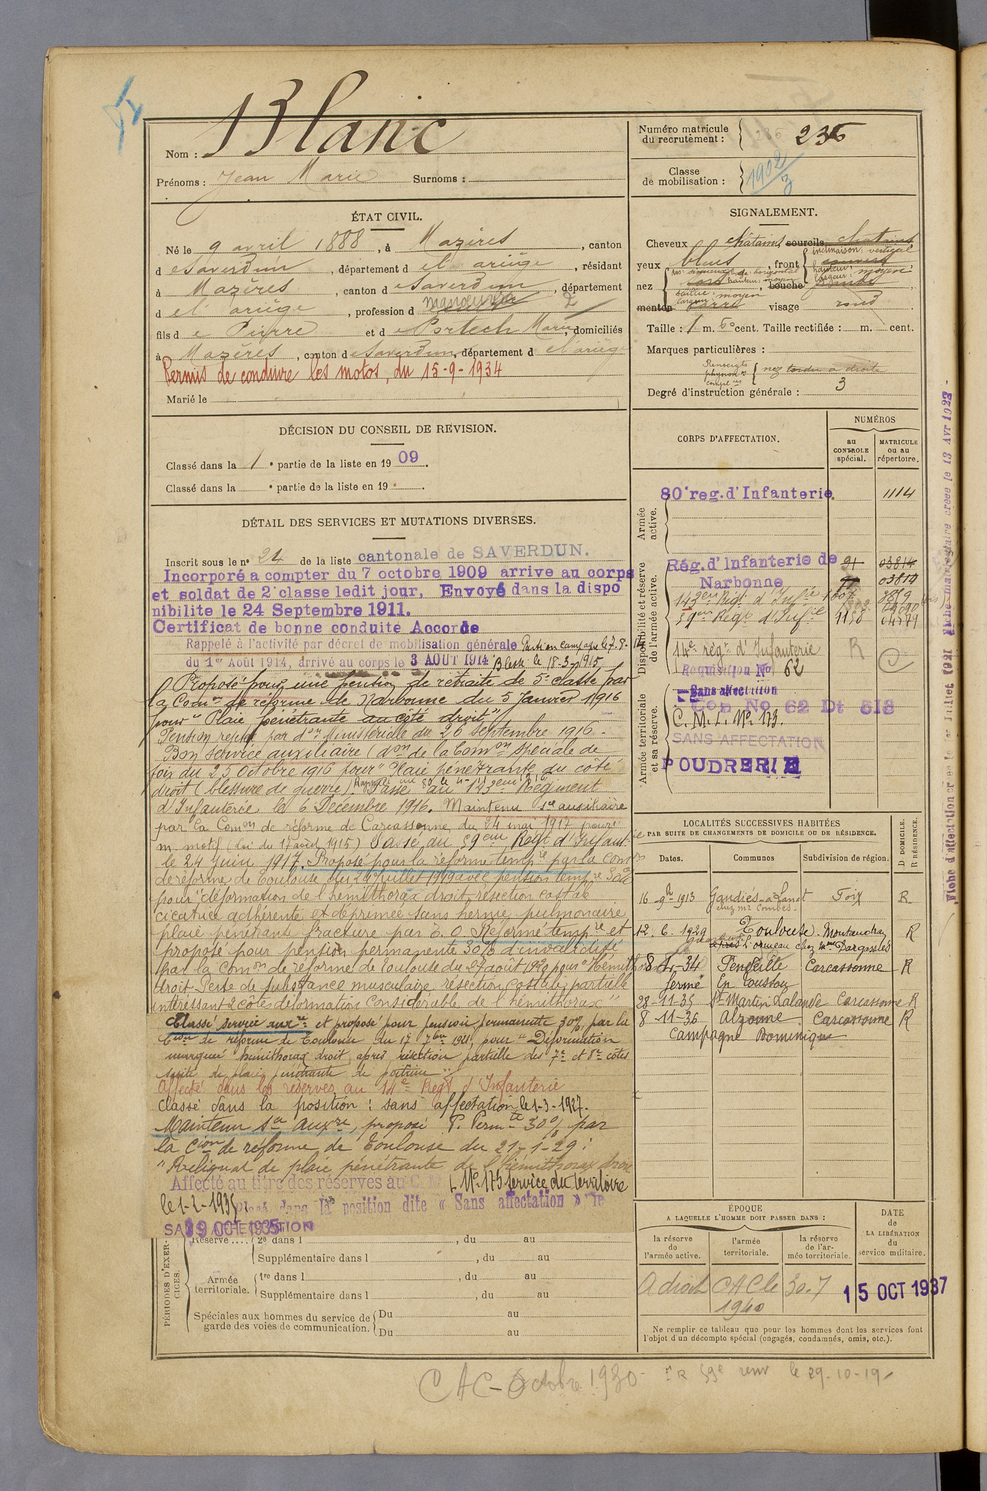 Blanc
Nom :
Prénoms : Jean Marie Surnoms :
ÉTAT CIVIL.
Né le 9 avril 1888, à Mazères, canton
de Saverdun, département de l'ariège, résidant
à Mazères, canton de Saverdun, département
de l'ariège, profession de manoeuvre
fils de Pierre et de Portech Marie, domiciliés
à Mazères, canton de Saverdun, département de l'ariège
Permis de conduire les motos, du 15-9-1934
Marié le
DÉCISION DU CONSEIL DE REVISION.
Classé dans la 1e partie de la liste en 1909.
Classé dans la e partie de la liste en 19 .
DÉTAIL DES SERVICES ET MUTATIONS DIVERSES.
Inscrit sous le n° 24 de la liste cantonale de SAVERDUN.
Incorporé a compter du 7 octobre 1909 arrive au corps
et soldat de 2e classe ledit jour, Envoyé dans la dispo
nibilite le 24 Septembre 1911.
Certificat de bonne conduite Accordé
Rappelé à l'activité par décret de mobilisation générale
du 1er Août 1914, arrivé au corps le 3 AOUT 1914 Blessé le
Proposé pour une pension de retraite de 5e classe par
la Comon de réforme de Narbonne du 5 Janvier 1916
pour "Plaie pénétrante au côté droit"
Pension refusée par don Ministérielle du 26 septembre 1916.
Bon service auxiliaire (don de la Comon Spéciale de
Foix du 23 Octobre 1916 pour "Plaie pénétrante du côté
droit (blessure de guerre). Passé au 143eme Régiment
d'Infanterie le 6 Décembre 1916. Maintenu sce auxiliaire
par la Comon de réforme de Carcassonne du 24 mai 1917 pour
m. motif Passé au 59eme Regt d'Infanterie
le 24 Juin 1917. Proposé pour la réforme tempre par la Comon
de réforme de Toulouse du 24 juillet 1919 avec pension tempre
pour déformation de l'hémithorax droit, résection costale
cicatrice adhérente et déprimée sans hernie pulmonaire
plaie pénétrante fracture par E.O. Réforme tempre et
proposé pour pension permanente 30% d'invalidité
par la Comon de réforme de Toulouse du 27 aout 1920 pour "Hémithorax
droit Perte de substance musculaire résection costale partielle
intéressant 2 côtes déformation considérable de l'hémithorax"
Classé service auxre et proposé pour pension permanente 30% par la
Cion de réforme de Toulouse du 17 7bre 1921, pour "Déformation
marquée hémithorax droit après résection partielle des 7e et 8e côtes
suite de plaie pénétrante de poitrine"
Affecté dans les réserves au 14e Regt d'Infanterie
Classé dans la position : sans affectation le 1-3-1927.
Maintenu Sce auxre, proposé P. Permte 30% par
la Cion de réforme de Toulouse du 21-1-29 :
"Reliquat de plaie pénétrante de l'hémithorax droit
Affecté au titre des réserves au C.M.I. No 175 service du territoire
le 1-2-1935
dans la position dite « Sans affectation » le
SANS AFFECTATION
29 OCT 1935
PÉRIODES D'EXERCICES.
Réserve .... 2e dans l , du au
Supplémentaire dans l , du au
Armée territoriale. 1re dans l , du au
Supplémentaire dans l , du au
Spéciales aux hommes du service de garde des voies de communication. Du au
Du au
Numéro matricule du recrutement : 235
Classe de mobilisation : 1902/3
SIGNALEMENT.
Cheveux châtains sourcils châtains
yeux bleus front inclinaison verticale
nez bouche
menton visage rond
Taille : 1 m. cent. Taille rectifiée : m. cent.
Marques particulières :
nez tordu à droite
Degré d'instruction générale : 3
CORPS D'AFFECTATION.
NUMÉROS
au CONTROLE spécial.
MATRICULE ou au répertoire.
Armée active.
80e reg. d'Infanterie. 1114
Disponibilité et réserve de l'armée active.
Rég. d'Infanterie de 91 03814
Narbonne 03814
143eme Régt d'Infie
59eme Régt d'Infie 1158
14e régt d'Infanterie R
Réquisition No 62
Armée territoriale et sa réserve.
Sans affectation
Con No 62 Dt 818
C.M.I. No 173.
SANS AFFECTATION
POUDRERIE
LOCALITÉS SUCCESSIVES HABITÉES
PAR SUITE DE CHANGEMENTS DE DOMICILE OU DE RÉSIDENCE.
Dates. Communes Subdivision de région. D DOMICILE. R RÉSIDENCE.
16 9bre 1913 Gaudiès Foix R
12-6-1929 Toulouse Montauban R
l'ormeau chez Mme Dargnolés
8-1-34 Fendeille Carcassonne R
ferme En Toussou
28-11-35 St Martin Lalande Carcassonne R
8-11-36 Alzonne Carcassonne R
Campagne Dominique
ÉPOQUE
A LAQUELLE L'HOMME DOIT PASSER DANS :
la réserve de l'armée active.
l'armée territoriale.
la réserve de l'armée territoriale.
DATE de LA LIBÉRATION du service militaire.
A droit CAC le 1940 30.7 15 OCT 1937
Ne remplir ce tableau que pour les hommes dont les services font
l'objet d'un décompte spécial (engagés, condamnés, omis, etc.).
CAC - Octobre 1930 59e le 29-10-19